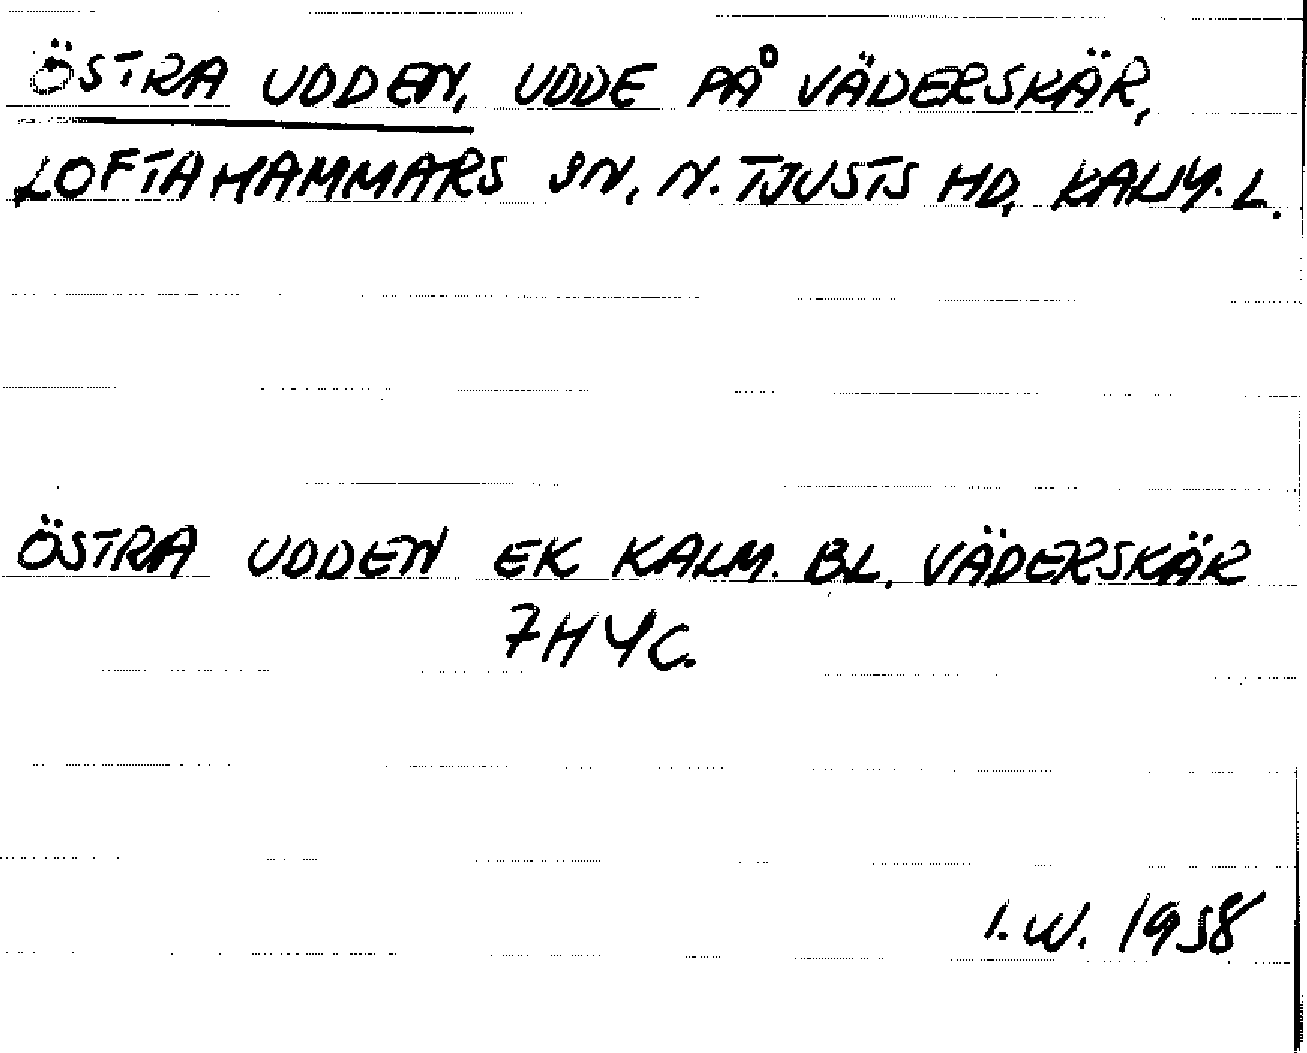 ÖSTRA UDDEN, UDDE PÅ VÄDERSKÄR,
LOFTAHAMMARS SN, N. TJUSTS HD, KALM. L.
ÖSTRA UDDEN EK KALM. BL. VÄDERSKÄR
7H4C.
I.W. 1958